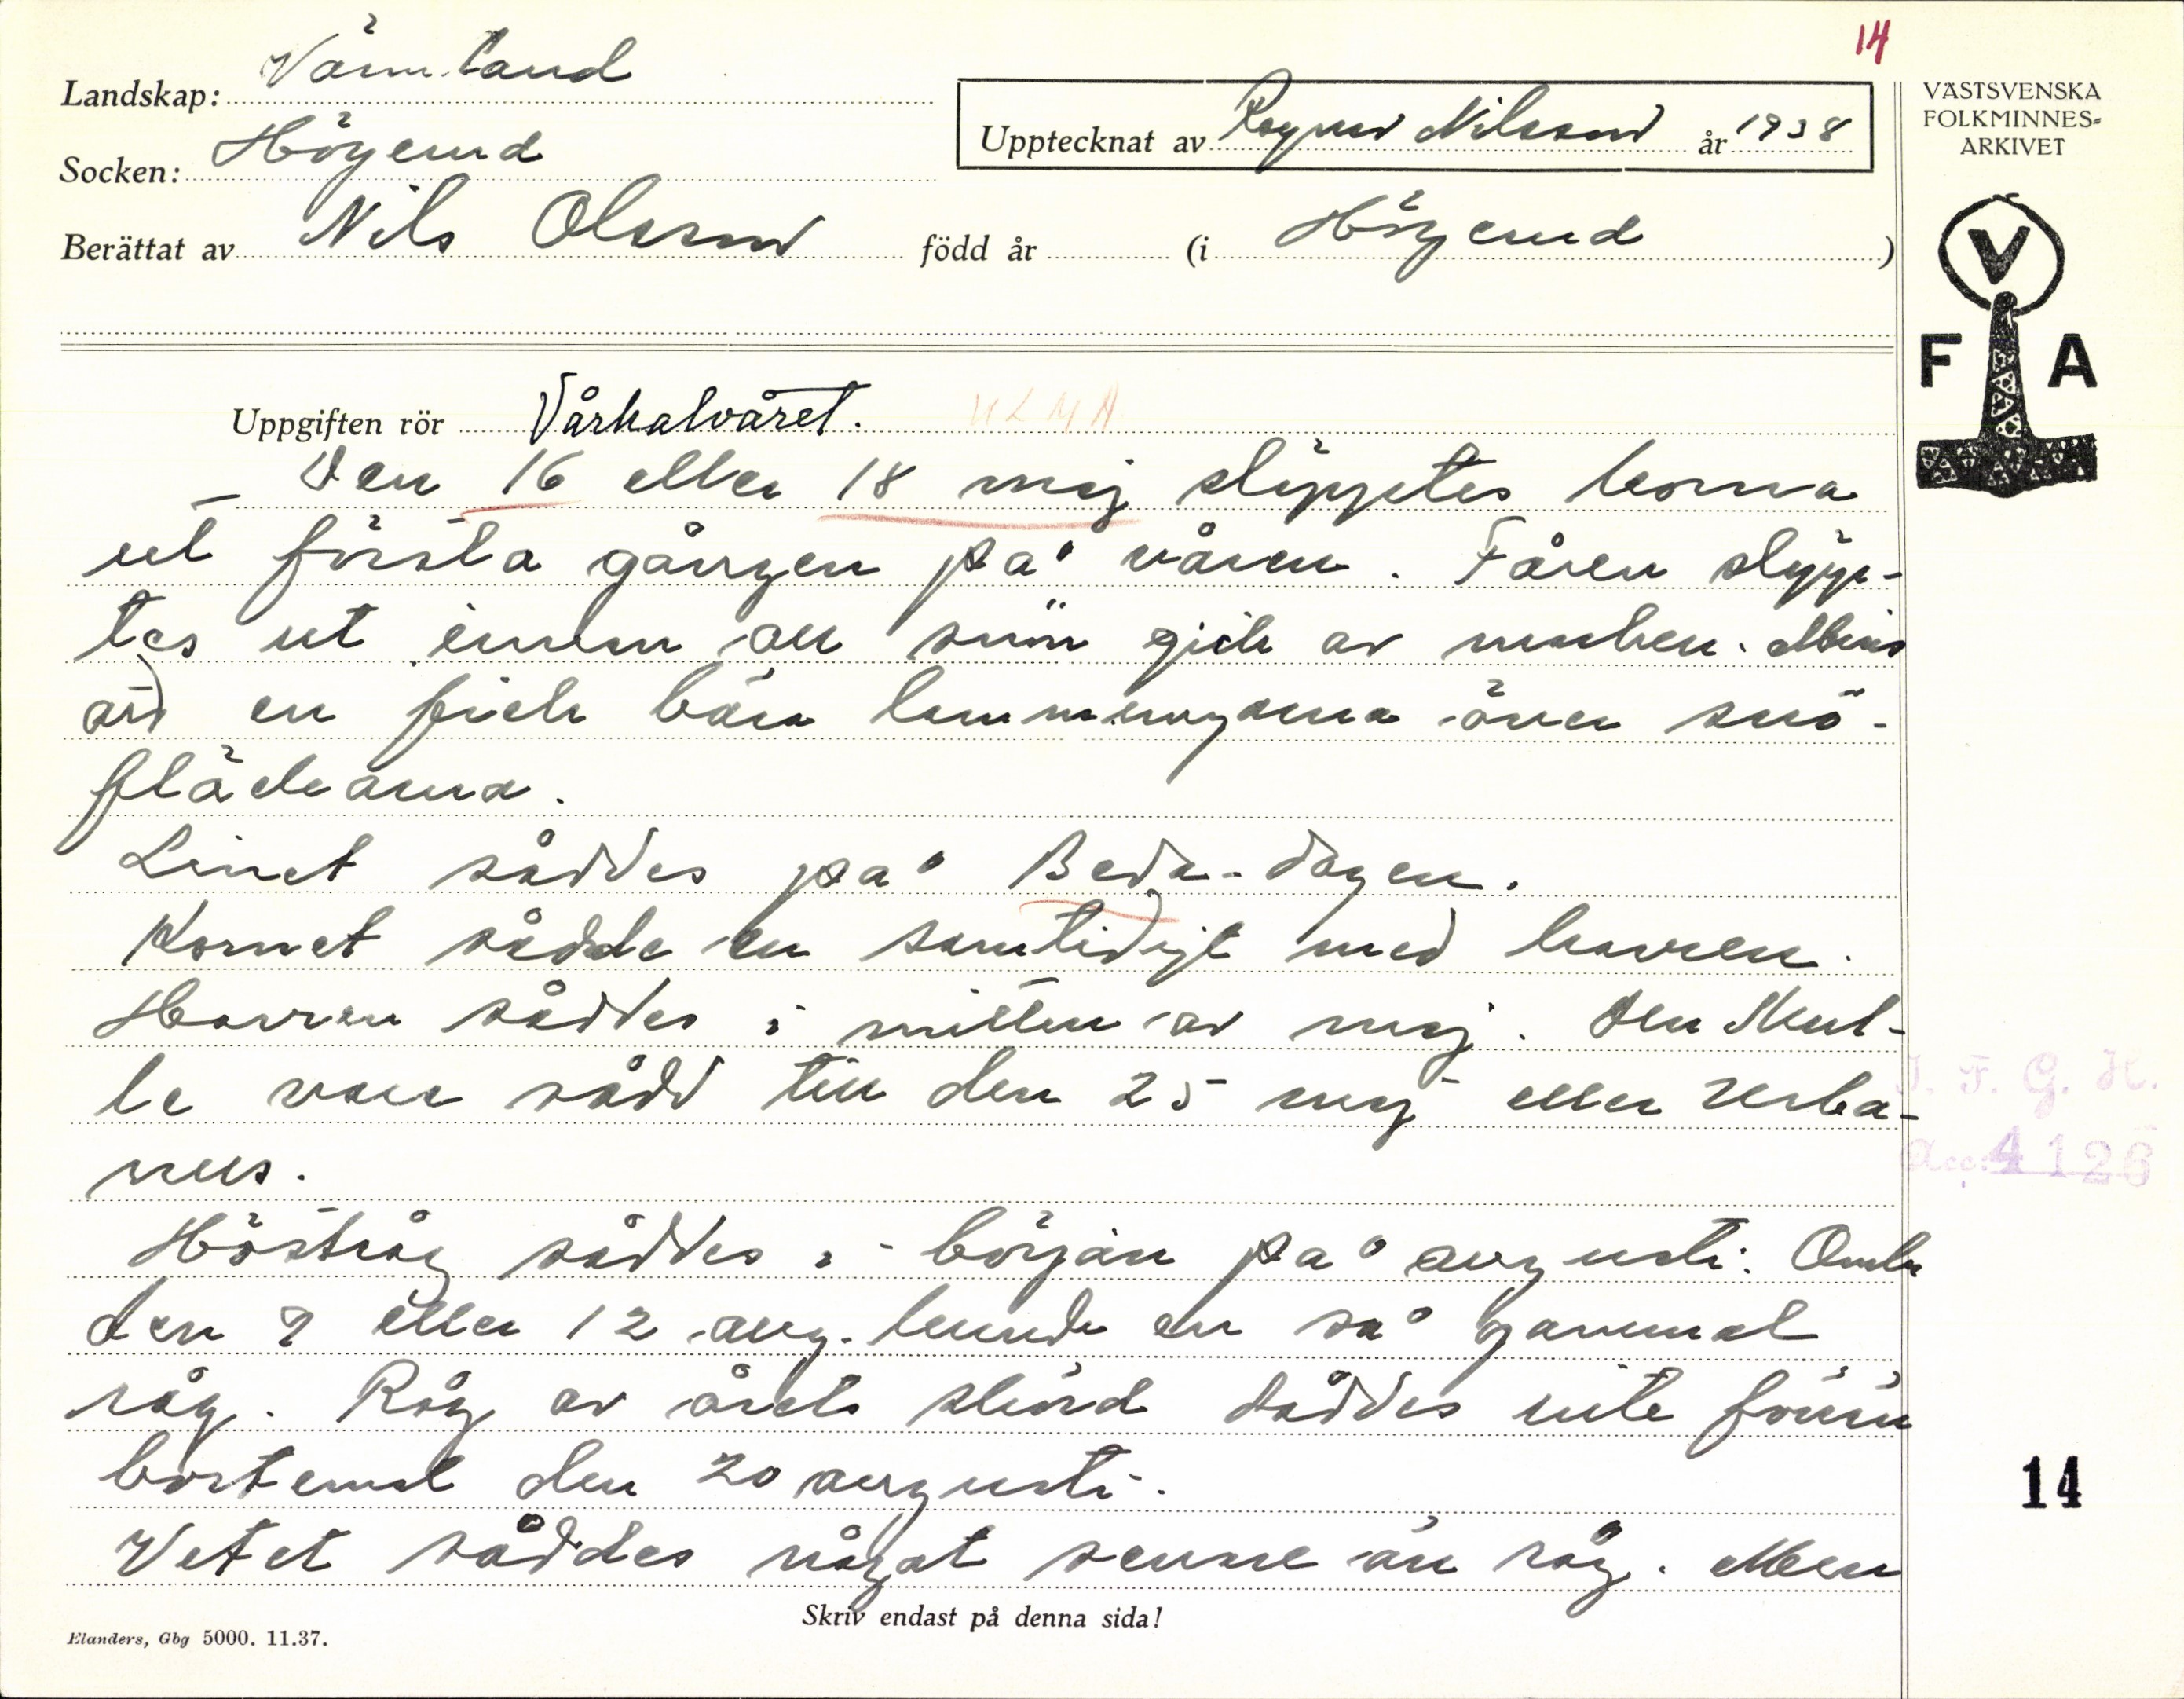 14
Landskap: Värmland
Socken: Högerud
Upptecknat av Ragnar Nilsson år 1938
Berättat av Nils Olsson född år (i Högerud )
VÄSTSVENSKA
FOLKMINNES-
ARKIVET
V
F A
Uppgiften rör Vårhalvåret. ULMA
Den 16 eller 18 maj släpptes korna
ut första gången på våren. Fåren släpp-
tes ut innan all snön gick av marken. Mins
att en fick bära lammungarna över snö-
fläckarna.
Linet såddes på Beda-dagen.
Kornet sådde en samtidigt med havren.
Havren såddes i mitten av maj. Den skul-
le vara sådd till den 25 maj eller Urba-
nus.
Höstråg såddes i början på augusti. Omkr
den 8 eller 12 aug. kunde en så gammal
råg. Råg av årets skörd såddes inte förrän
bortemot den 20 augusti.
Vetet såddes något senare än råg. Men
I. F. G. H.
Acc: 4126
14
Skriv endast på denna sida!
Elanders, Gbg 5000. 11.37.